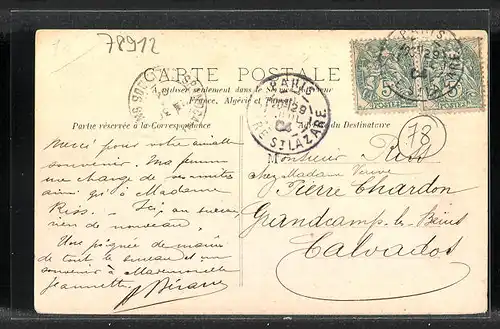 78912
CARTE POSTALE
A utiliser seulement dans le Service Intérieur
France, Algérie et Tunisie
Partie réservée à la Correspondance
Adresse du Destinataire
PARIS
29
04
RE ST LAZARE
PARIS
29
04
5 5
POSTES POSTES
78
Merci pour votre aimable
souvenir. Ma femme
me charge de ses amitiés
ainsi qu'à Madame
Riss. Ici, au bureau
rien de nouveau.
Une poignée de main
de tout le bureau et un
souvenir à Mademoiselle
Jeannette.
Monsieur Riss
chez Madame Veuve
Pierre Chardon
Grandcamp les Bains
Calvados